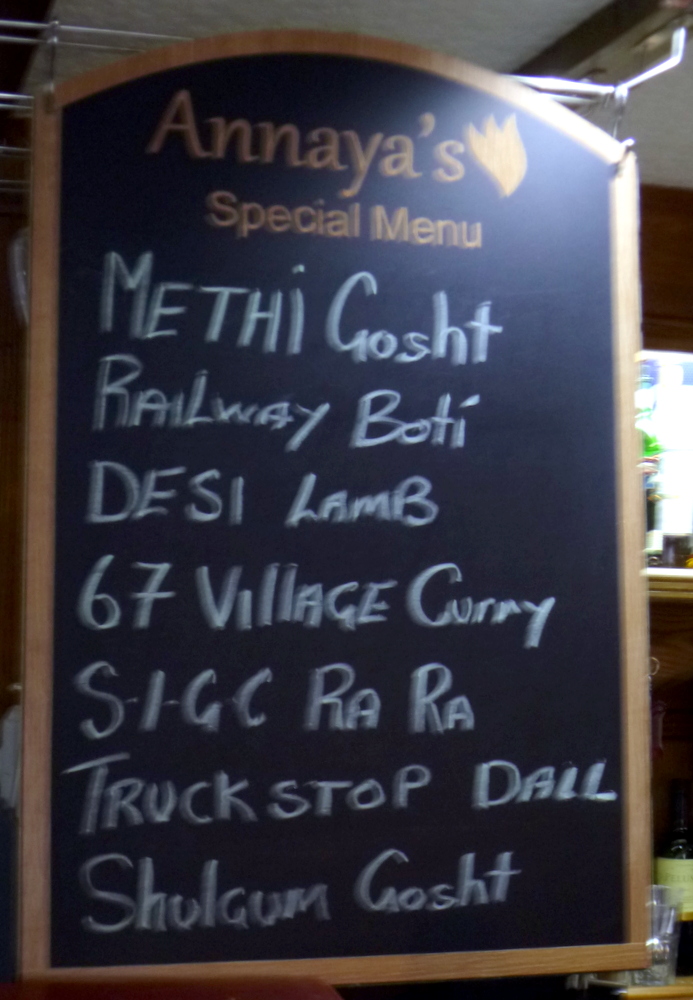 Annaya's
Special Menu
METHi Gosht
RAiLWAY Boti
DESI LAMB
67 VillAGE Curry
S-I-G-C RA RA
TRUCK STOP DALL
Shulgum Gosht